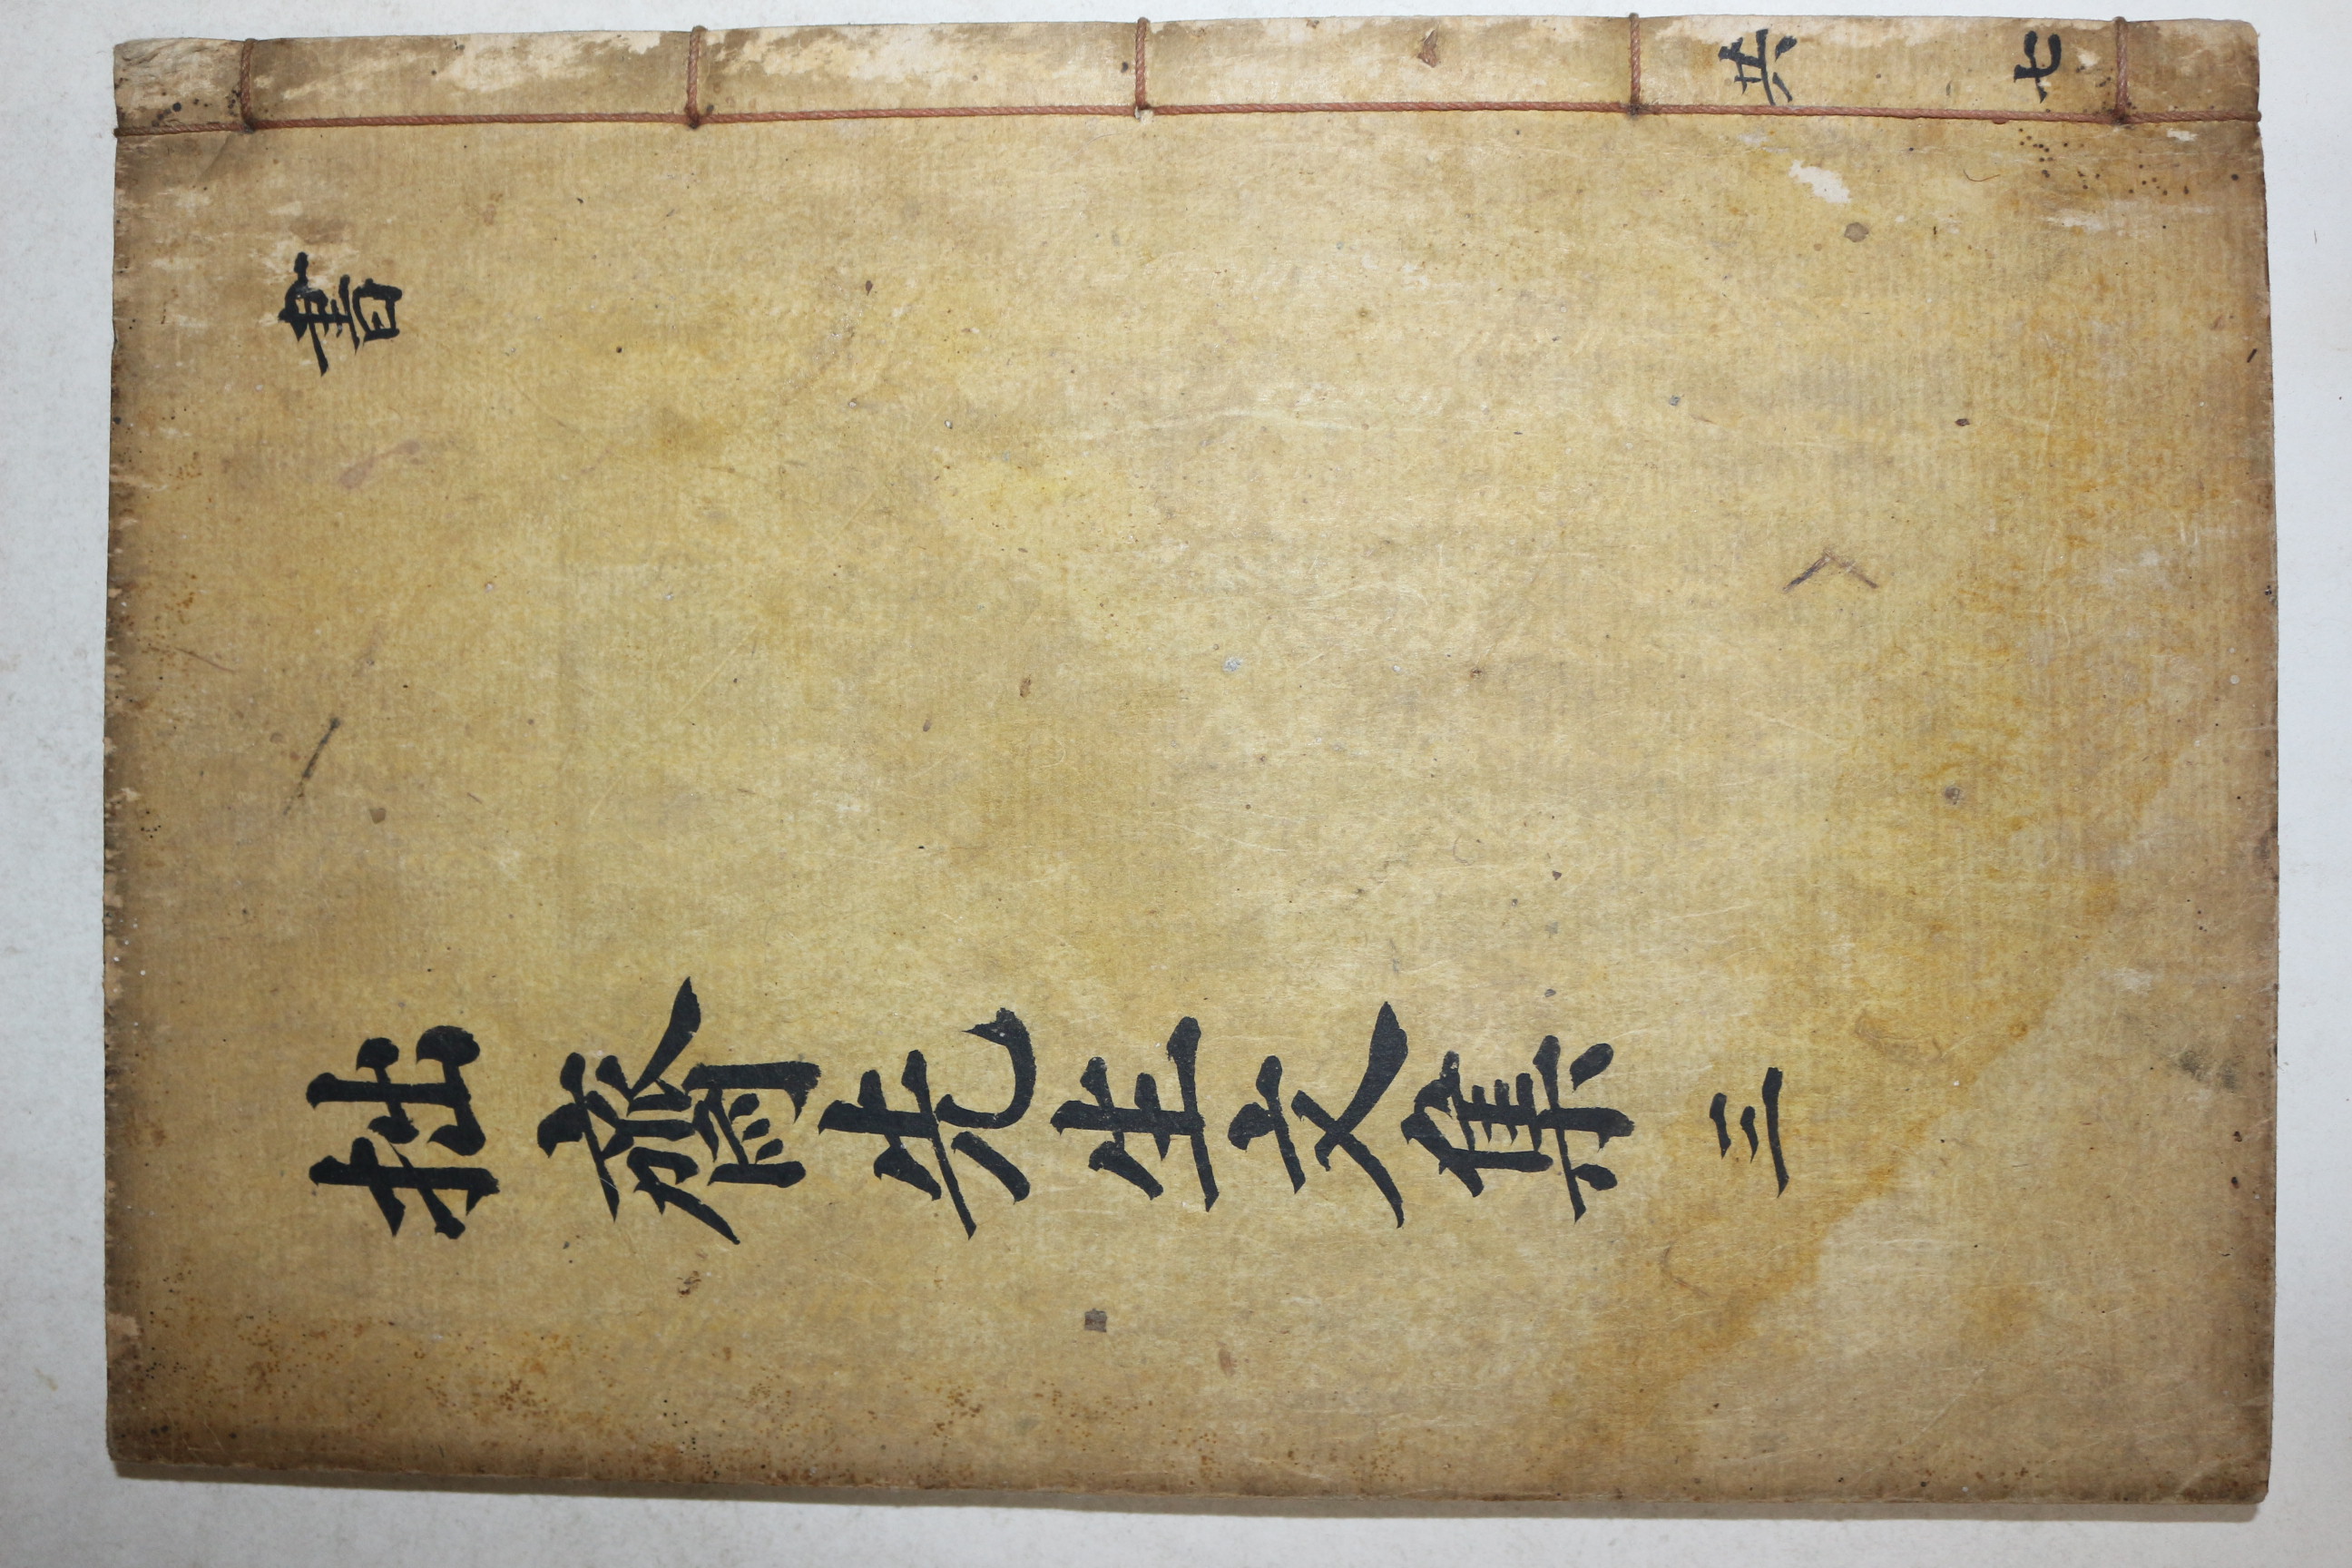 書
拙齋先生文集 三
共 七